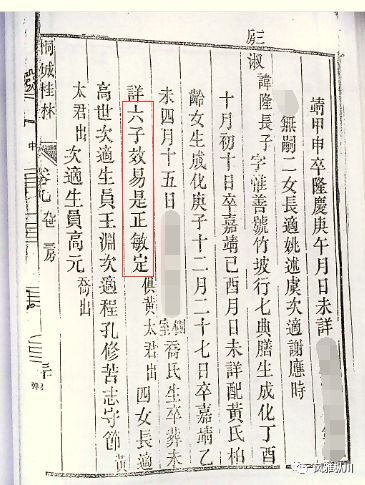 靖甲申卒隆慶庚午月日未詳
無嗣二女長適姚述虞次適謝應時
房三
淑
諱隆長子字惟善號竹坡行七典膳生成化丁酉
十月初十日卒嘉靖己酉月日未詳配黃氏栢
齡女生成化庚子十二月二十七日卒嘉靖乙
未四月十五日
側室喬氏生卒葬未
詳六子效易是正敏定
俱黃太君出
四女長適
高世次適生員王淵次適程孔修苦志守節
黃太君出
次適生員高元
喬出
桐城桂林
卷九
房
三十
风雅纵川